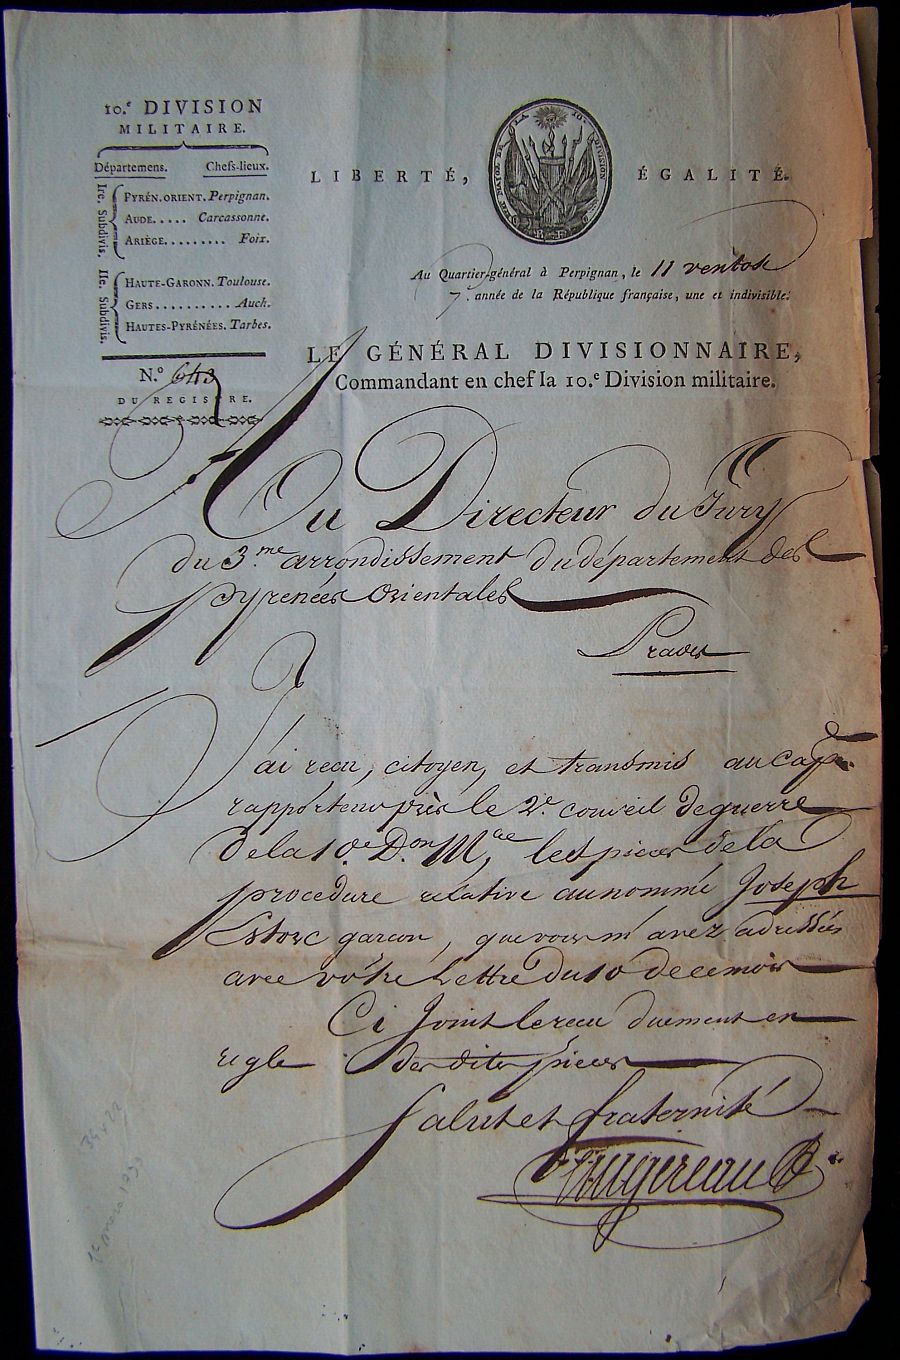 10.e DIVISION
MILITAIRE.
Départemens. Chefs-lieux.
Ire. Subdivis.
PYRÉN. ORIENT. Perpignan.
AUDE..... Carcassonne.
ARIÈGE......... Foix.
IIe. Subdivis.
HAUTE-GARONN. Toulouse.
GERS.......... Auch.
HAUTES-PYRÉNÉES. Tarbes.
N.o 643
DU REGISTRE.
LIBERTÉ, ÉGALITÉ.
Au Quartier-général à Perpignan, le 11 ventose
7. année de la République française, une et indivisible.
LE GÉNÉRAL DIVISIONNAIRE,
Commandant en chef la 10.e Division militaire.
Au Directeur du Jury
du 3.me arrondissement du département des
Pyrénées Orientales
Prades
J'ai recu, citoyen, et transmis au cap.ne
rapporteur près le 2.e conseil de guerre
de la 10.e D.on M.re, les pieces de la
procedure relative au nommé Joseph
Estorc garçon, que vous m'avez adressées
avec votre Lettre du 10 de ce mois
Ci Joint le recu duement en
regle des dites pieces
Salut et fraternité